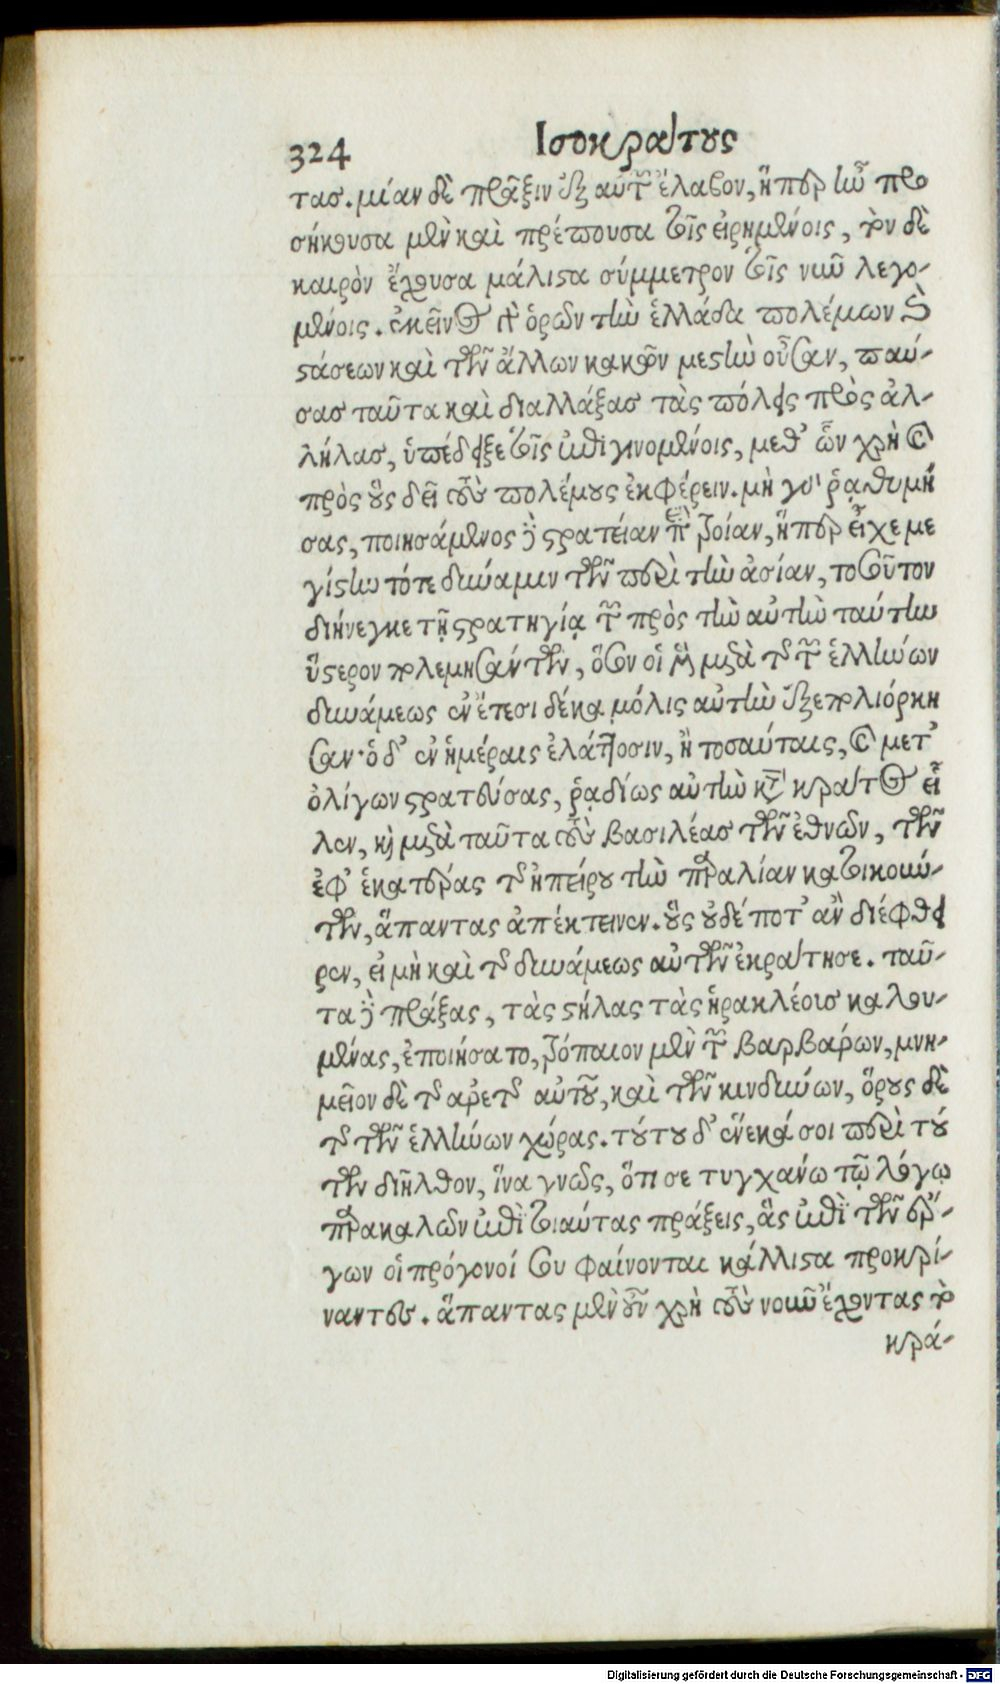 324 Ισοκράτους
τας. μίαν δὲ πρᾶξιν ἐξ αὐτῶν ἔλαβον, ἥπερ ἦν προ
σήκουσα μὲν καὶ πρέπουσα τοῖς εἰρημένοις, τὸν δὲ
καιρὸν ἔχουσα μάλιστα σύμμετρον τοῖς νῦν λεγο-
μένοις. ἐκεῖνος γὰρ ὁρῶν τὴν ἑλλάδα πολέμων καὶ
στάσεων καὶ τῶν ἄλλων κακῶν μεστὴν οὖσαν, παύ-
σας ταῦτα καὶ διαλλάξας τὰς πόλεις πρὸς ἀλ-
λήλας, ὑπέδειξε τοῖς ἐπιγινομένοις, μεθ' ὧν χρὴ καὶ
πρὸς οὓς δεῖ τοὺς πολέμους ἐκφέρειν. μὴ γὰρ ῥᾳθυμή
σας, ποιησάμενος δὲ στρατείαν ἐπὶ τροίαν, ἥπερ εἶχε με
γίστην τότε δύναμιν τῶν περὶ τὴν ἀσίαν, τοσοῦτον
διήνεγκε τῇ στρατηγίᾳ τῶν πρὸς τὴν αὐτὴν ταύτην
ὕστερον πολεμησάντων, ὅσον οἱ μὲν μετὰ τῆς τῶν ἑλλήνων
δυνάμεως ἐν ἔτεσι δέκα μόλις αὐτὴν ἐξεπολιόρκη
σαν· ὁ δ' ἐν ἡμέραις ἐλάττοσιν, ἢ τοσαύταις, καὶ μετ'
ὀλίγων στρατεύσας, ῥᾳδίως αὐτὴν κατὰ κράτος εἷ
λεν, καὶ μετὰ ταῦτα τοὺς βασιλέας τῶν ἐθνῶν, τῶν
ἐφ' ἑκατέρας τῆς ἠπείρου τὴν παραλίαν κατοικούν-
των, ἅπαντας ἀπέκτεινεν. οὓς οὐδέποτ' ἂν διέφθει
ρεν, εἰ μὴ καὶ τῆς δυνάμεως αὐτῶν ἐκράτησε. ταῦ-
τα δὲ πράξας, τὰς στήλας τὰς ἡρακλέους καλου-
μένας, ἐποιήσατο, τρόπαιον μὲν τῶν βαρβάρων, μνη-
μεῖον δὲ τῆς ἀρετῆς αὐτοῦ, καὶ τῶν κινδύνων, ὅρους δὲ
τῆς τῶν ἑλλήνων χώρας. τούτου δ' ἕνεκά σοι περὶ τού
των διῆλθον, ἵνα γνῶς, ὅτι σε τυγχάνω τῷ λόγῳ
παρακαλῶν ἐπὶ τοιαύτας πράξεις, ἃς ἐπὶ τῶν ἔρ-
γων οἱ πρόγονοί σου φαίνονται κάλλιστα προκρί-
ναντες. ἅπαντας μὲν οὖν χρὴ τοὺς νοῦν ἔχοντας τὸ
κρά-
Digitalisierung gefördert durch die Deutsche Forschungsgemeinschaft - DFG